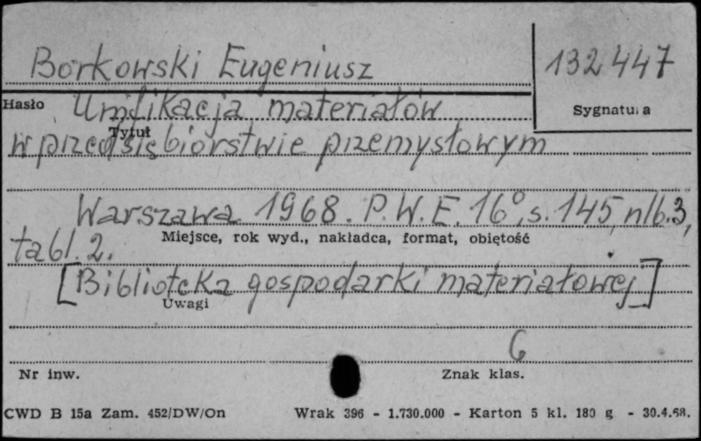 Borkowski Eugeniusz
132447
Hasło
Unifikacja materiałów
Sygnatura
Tytuł
w przedsiębiorstwie przemysłowym
Warszawa 1968. P.W.E. 16°, s. 145, nlb. 3,
tabl. 2.
Miejsce, rok wyd., nakładca, format, objętość
[Biblioteka gospodarki materiałowej]
Uwagi
6
Nr inw.
Znak klas.
CWD B 15a Zam. 452/DW/On
Wrak 396 - 1.730.000 - Karton 5 kl. 180 g - 30.4.68.